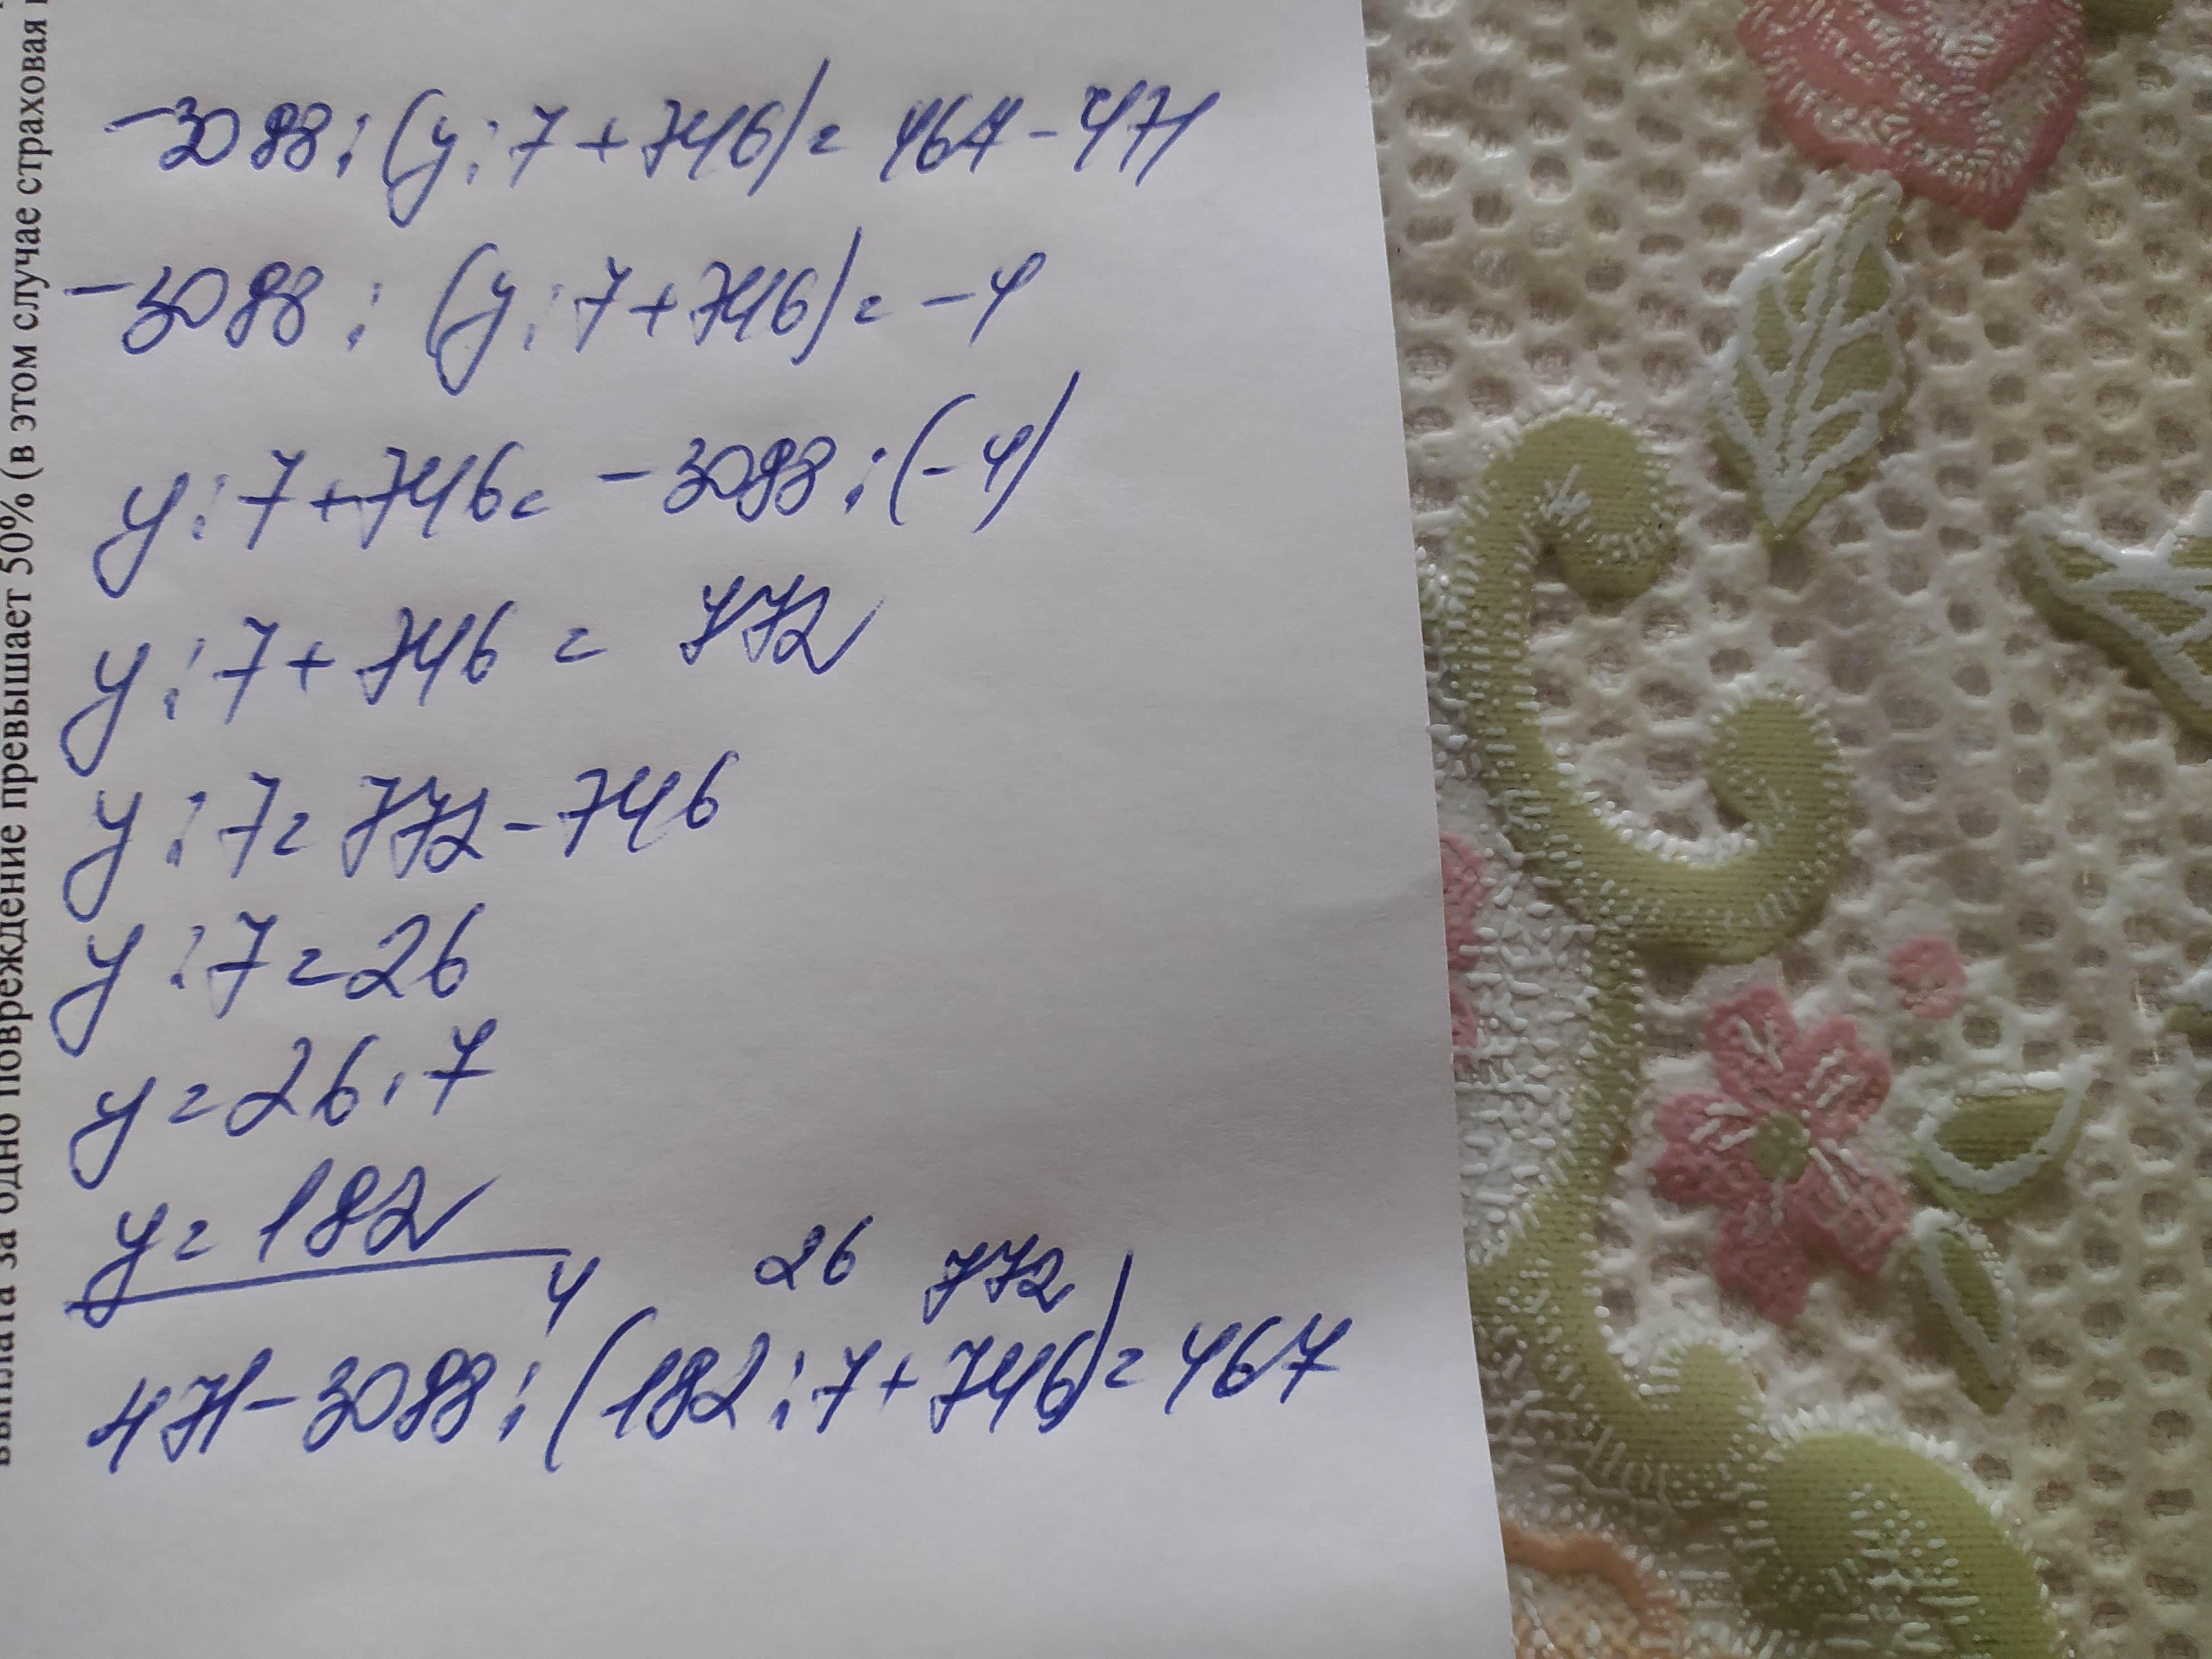 -3088 : (y : 7 + 746) = 467 - 471
-3088 : (y : 7 + 746) = -4
y : 7 + 746 = -3088 : (-4)
y : 7 + 746 = 772
y : 7 = 772 - 746
y : 7 = 26
y = 26 · 7
y = 182
4 26 772
471 - 3088 : (182 : 7 + 746) = 467
выплата за одно повреждение превышает 50% (в этом случае страховая